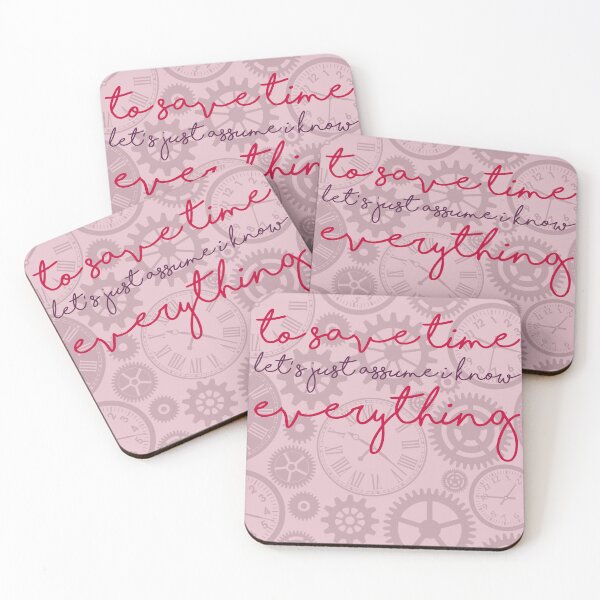 to save time
let's just assume i know
everything
to save time
let's just assume i know
everything
to save time
let's just assume i know
everything
to save time
let's just assume i know
everything